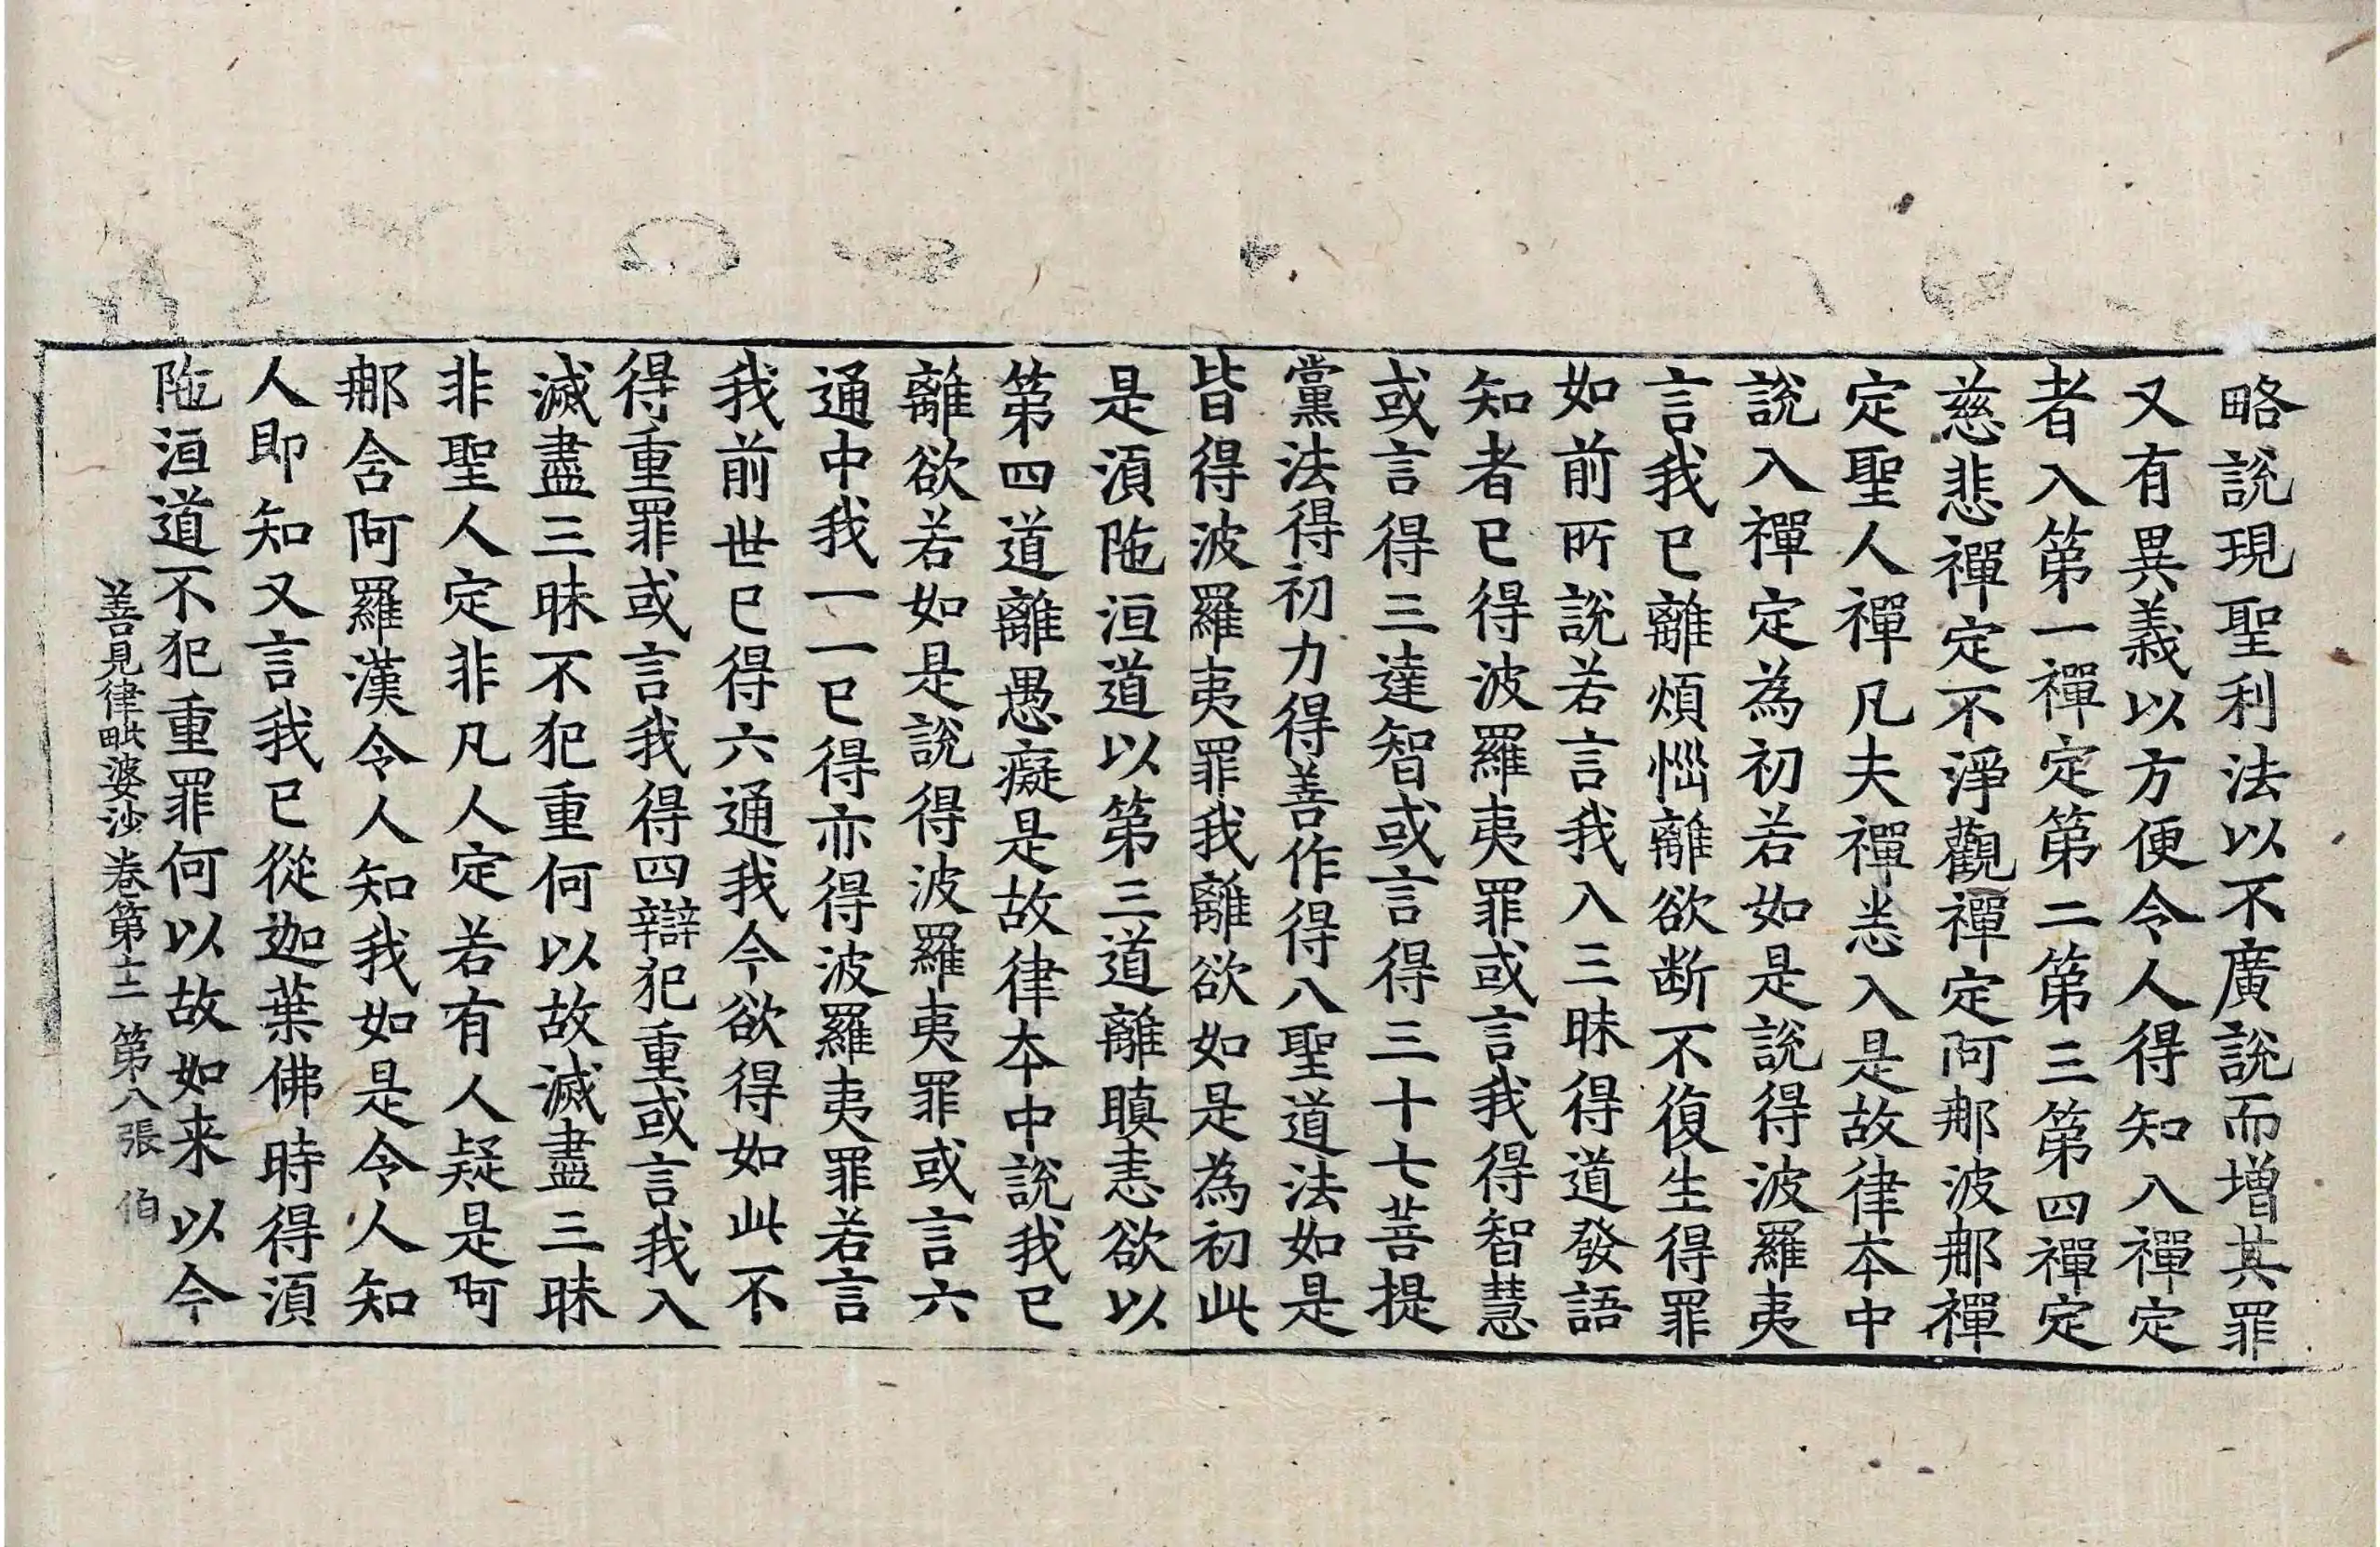 略說現聖利法以不廣說而增其罪
又有異義以方便令人得知入禪定
者入第一禪定第二第三第四禪定
慈悲禪定不淨觀禪定阿那波那禪
定聖人禪凡夫禪恙入是故律夲中
說入禪定為初若如是說得波羅夷
言我已離煩惱離欲断不復生得罪
如前所說若言我入三昧得道發語
知者已得波羅夷罪或言我得智慧
或言得三達智或言得三十七菩提
黨法得初力得善作得八聖道法如是
皆得波羅夷罪我離欲如是為初此
是湏陁洹道以第三道離瞋恚欲以
第四道離愚癡是故律夲中說我已
離欲若如是說得波羅夷罪或言六
通中我一一已得亦得波羅夷罪若言
我前世已得六通我今欲得如此不
得重罪或言我得四辯犯重或言我入
滅盡三昧不犯重何以故滅盡三昧
非聖人定非凡人定若有人疑是阿
那含阿羅漢令人知我如是令人知
人即知又言我已從迦葉佛時得湏
陁洹道不犯重罪何以故如来以今
善見律毗婆沙卷第十二 第八張 伯